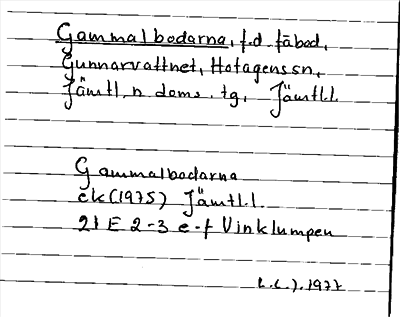 Gammalbodarna, f.d. fäbod,
Gunnarvattnet, Hotagens sn,
Jämtl. n. doms. tg, Jämtl. l.
Gammalbodarna
ek (1975) Jämtl. l.
21 E 2-3 e-f Vinklumpen
1977